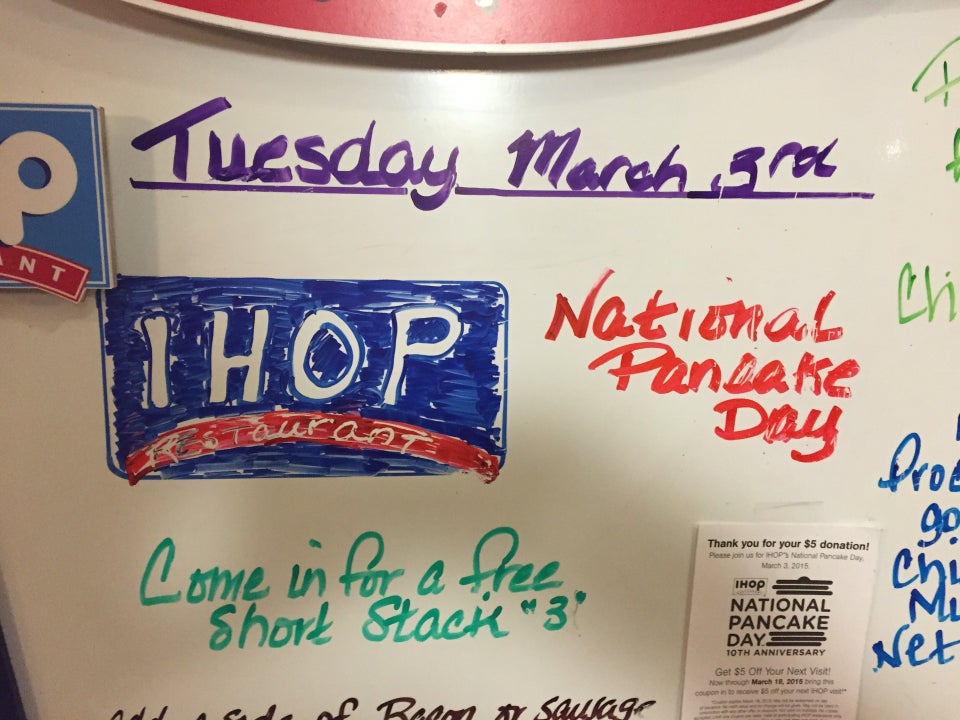 Tuesday March 3rd
P
ANT
IHOP
Restaurant
National
Pancake
Day
Come in for a free
Short Stack "3"
Add a side of Bacon or sausage
Chi
Proc
go
Chi
Mu
Net
Thank you for your $5 donation!
Please join us for IHOP's National Pancake Day,
March 3, 2015.
IHOP
NATIONAL
PANCAKE
DAY
10TH ANNIVERSARY
Get $5 Off Your Next Visit!
Now through March 18, 2015 bring this
coupon in to receive $5 off your next IHOP visit!*